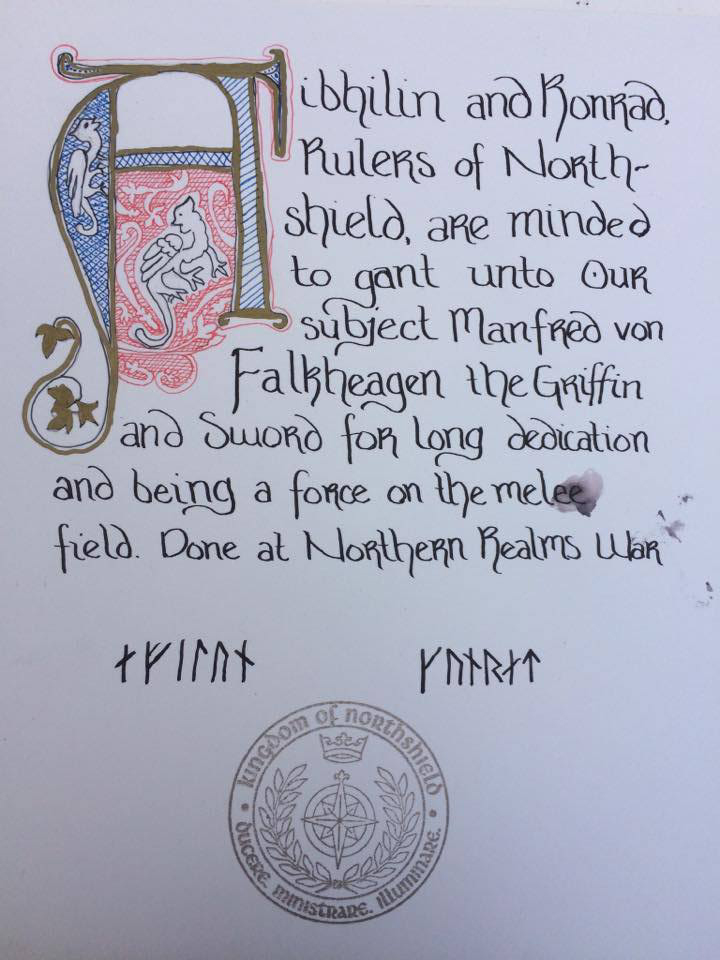 Aibhilin and Konrad,
Rulers of North-
shield, are minded
to gant unto Our
subject Manfred von
Falkheagen the Griffin
and Sword for long dedication
and being a force on the melee
field. Done at Northern Realms War
ᛅᚠᛁᛚᚢᚾ ᚴᚢᚾᚱᛅᛏ
• Kingdom of Northshield •
Ducere. Ministrare. Illuminare.